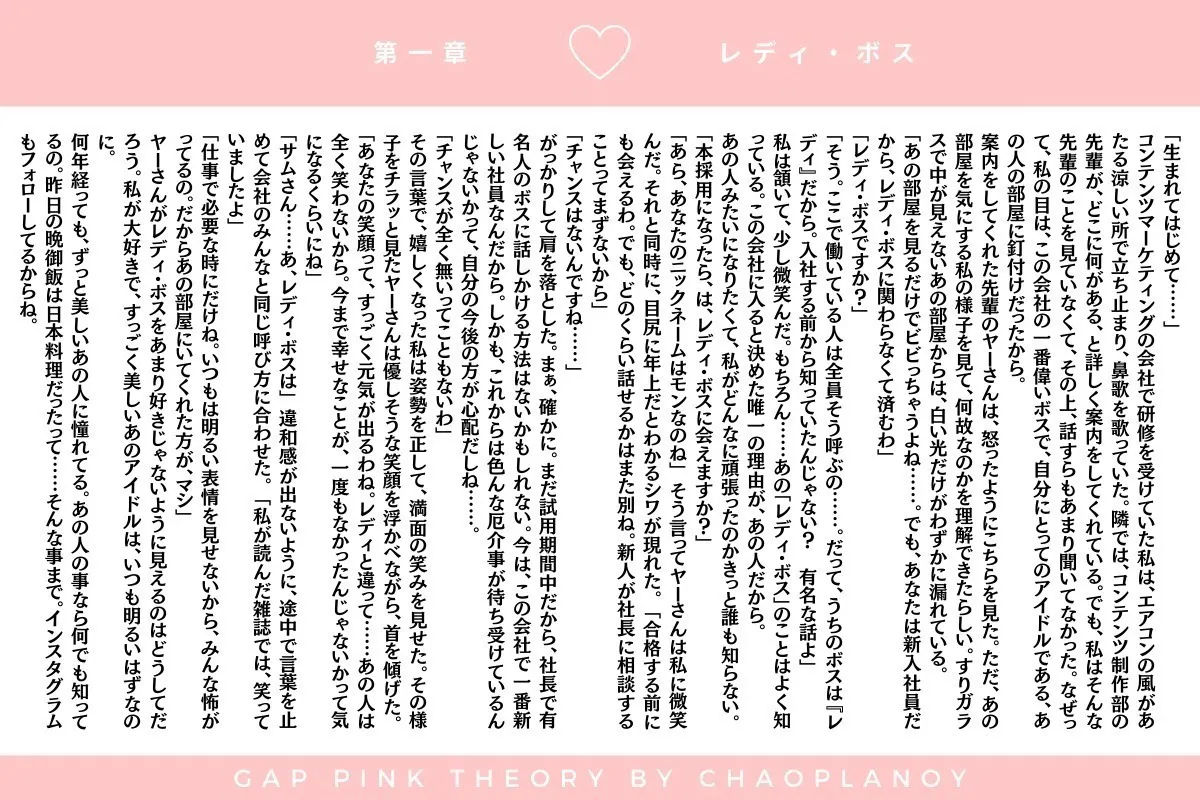 第一章
レディ・ボス
「生まれてはじめて……」
コンテンツマーケティングの会社で研修を受けていた私は、エアコンの風があ
たる涼しい所で立ち止まり、鼻歌を歌っていた。隣では、コンテンツ制作部の
先輩が、どこに何がある、と詳しく案内をしてくれている。でも、私はそんな
先輩のことを見ていなくて、その上、話すらもあまり聞いてなかった。なぜっ
て、私の目は、この会社の一番偉いボスで、自分にとってのアイドルである、あ
の人の部屋に釘付けだったから。
案内をしてくれた先輩のヤーさんは、怒ったようにこちらを見た。ただ、あの
部屋を気にする私の様子を見て、何故なのかを理解できたらしい。すりガラ
スで中が見えないあの部屋からは、白い光だけがわずかに漏れている。
「あの部屋を見るだけでビビっちゃうよね……。でも、あなたは新入社員だ
から、レディ・ボスに関わらなくて済むわ」
「レディ・ボスですか？」
「そう。ここで働いている人は全員そう呼ぶの……。だって、うちのボスは『レ
ディ』だから。入社する前から知っていたんじゃない？　有名な話よ」
私は頷いて、少し微笑んだ。もちろん……あの「レディ・ボス」のことはよく知
っている。この会社に入ると決めた唯一の理由が、あの人だから。
あの人みたいになりたくて、私がどんなに頑張ったのかきっと誰も知らない。
「本採用になったら、は、レディ・ボスに会えますか？」
「あら、あなたのニックネームはモンなのね」　そう言ってヤーさんは私に微笑
んだ。それと同時に、目尻に年上だとわかるシワが現れた。　「合格する前に
も会えるわ。でも、どのくらい話せるかはまた別ね。新人が社長に相談する
ことってまずないから」
「チャンスはないんですね……」
がっかりして肩を落とした。まぁ、確かに。まだ試用期間中だから、社長で有
名人のボスに話しかける方法はないかもしれない。今は、この会社で一番新
しい社員なんだから。しかも、これからは色んな厄介事が待ち受けているん
じゃないかって、自分の今後の方が心配だしね……。
「チャンスが全く無いってこともないわ」
その言葉で、嬉しくなった私は姿勢を正して、満面の笑みを見せた。その様
子をチラッと見たヤーさんは優しそうな笑顔を浮かべながら、首を傾げた。
「あなたの笑顔って、すっごく元気が出るわね。レディと違って……あの人は
全く笑わないから。今まで幸せなことが、一度もなかったんじゃないかって気
になるくらいにね」
「サムさん……あ、レディ・ボスは」　違和感が出ないように、途中で言葉を止
めて会社のみんなと同じ呼び方に合わせた。　「私が読んだ雑誌では、笑って
いましたよ」
「仕事で必要な時にだけね。いつもは明るい表情を見せないから、みんな怖が
ってるの。だからあの部屋にいてくれた方が、マシ」
ヤーさんがレディ・ボスをあまり好きじゃないように見えるのはどうしてだ
ろう。私が大好きで、すっごく美しいあのアイドルは、いつも明るいはずなの
に。
何年経っても、ずっと美しいあの人に憧れてる。あの人の事なら何でも知って
るの。昨日の晩御飯は日本料理だったって……そんな事まで。インスタグラム
もフォローしてるからね。
GAP PINK THEORY BY CHAOPLANOY